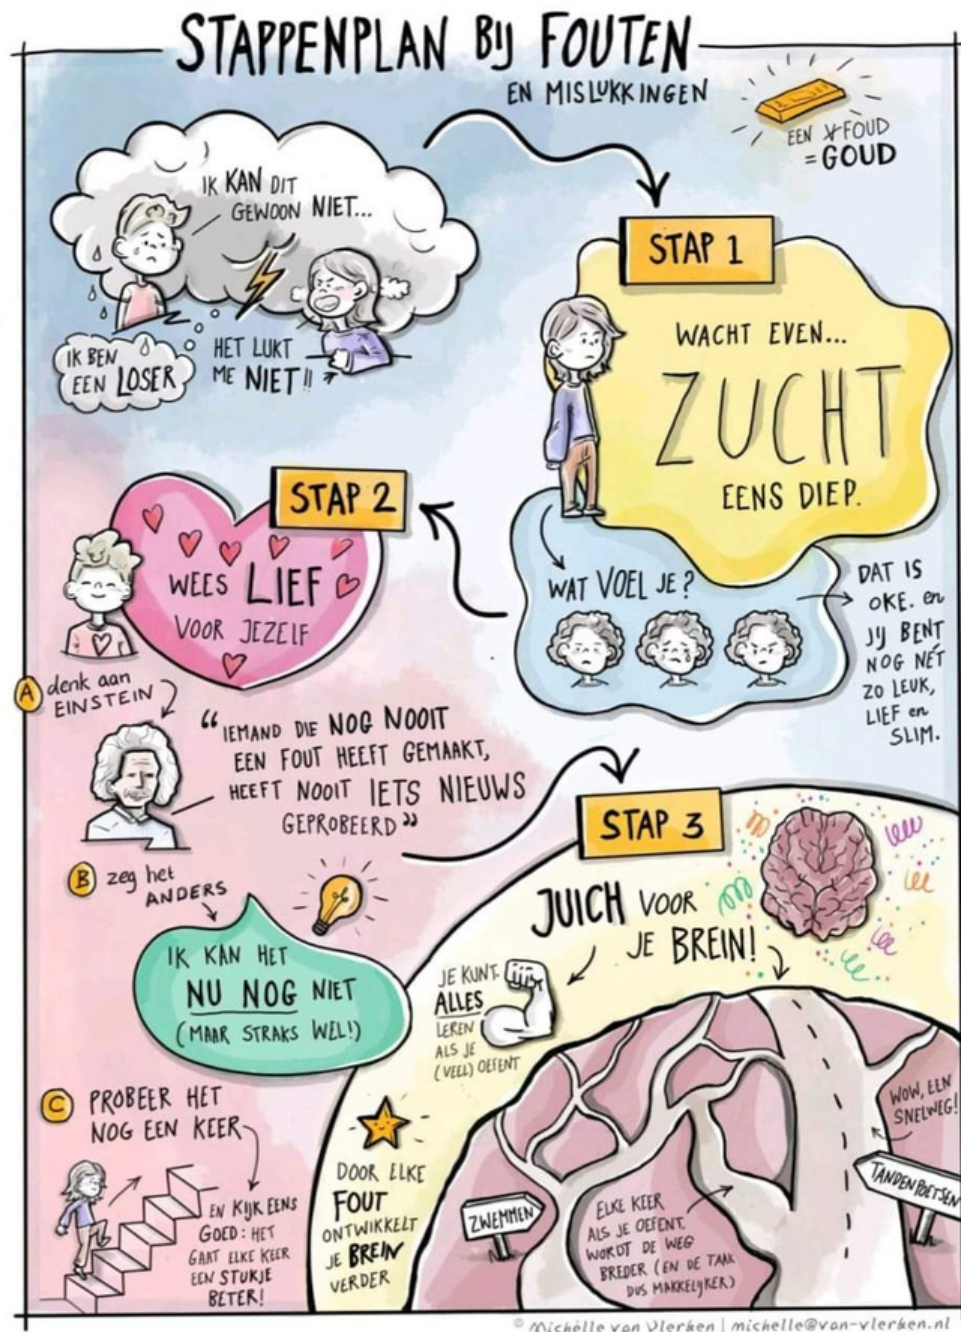 STAPPENPLAN BIJ FOUTEN
EN MISLUKKINGEN
EEN FOUD
= GOUD
IK KAN DIT
GEWOON NIET...
IK BEN
EEN LOSER
HET LUKT
ME NIET!!
STAP 1
WACHT EVEN...
ZUCHT
EENS DIEP.
WAT VOEL JE?
DAT IS
OKE. en
JIJ BENT
NOG NÉT
ZO LEUK,
LIEF en
SLIM.
STAP 2
WEES LIEF
VOOR JEZELF
A denk aan
EINSTEIN
“IEMAND DIE NOG NOOIT
EEN FOUT HEEFT GEMAAKT,
HEEFT NOOIT IETS NIEUWS
GEPROBEERD”
B zeg het
ANDERS
IK KAN HET
NU NOG NIET
(MAAR STRAKS WEL!)
C PROBEER HET
NOG EEN KEER
EN KIJK EENS
GOED: HET
GAAT ELKE KEER
EEN STUKJE
BETER!
STAP 3
JUICH VOOR
JE BREIN!
JE KUNT
ALLES
LEREN
ALS JE
(VEEL) OEFENT
DOOR ELKE
FOUT
ONTWIKKELT
JE BREIN
VERDER
ZWEMMEN
ELKE KEER
ALS JE OEFENT
WORDT DE WEG
BREDER (EN DE TAAK
DUS MAKKELIJKER)
WOW, EEN
SNELWEG!
TANDENPOETSEN
© Michèlle van Vlerken | michelle@van-vlerken.nl